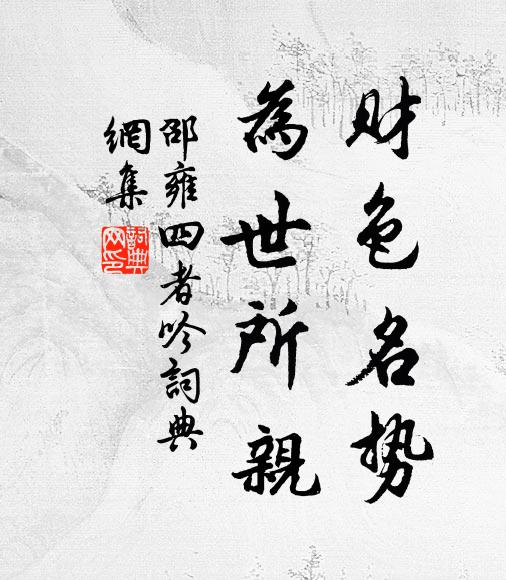 财色名势
為世所親
邵雍四者吟詞典
網集
詞典網印